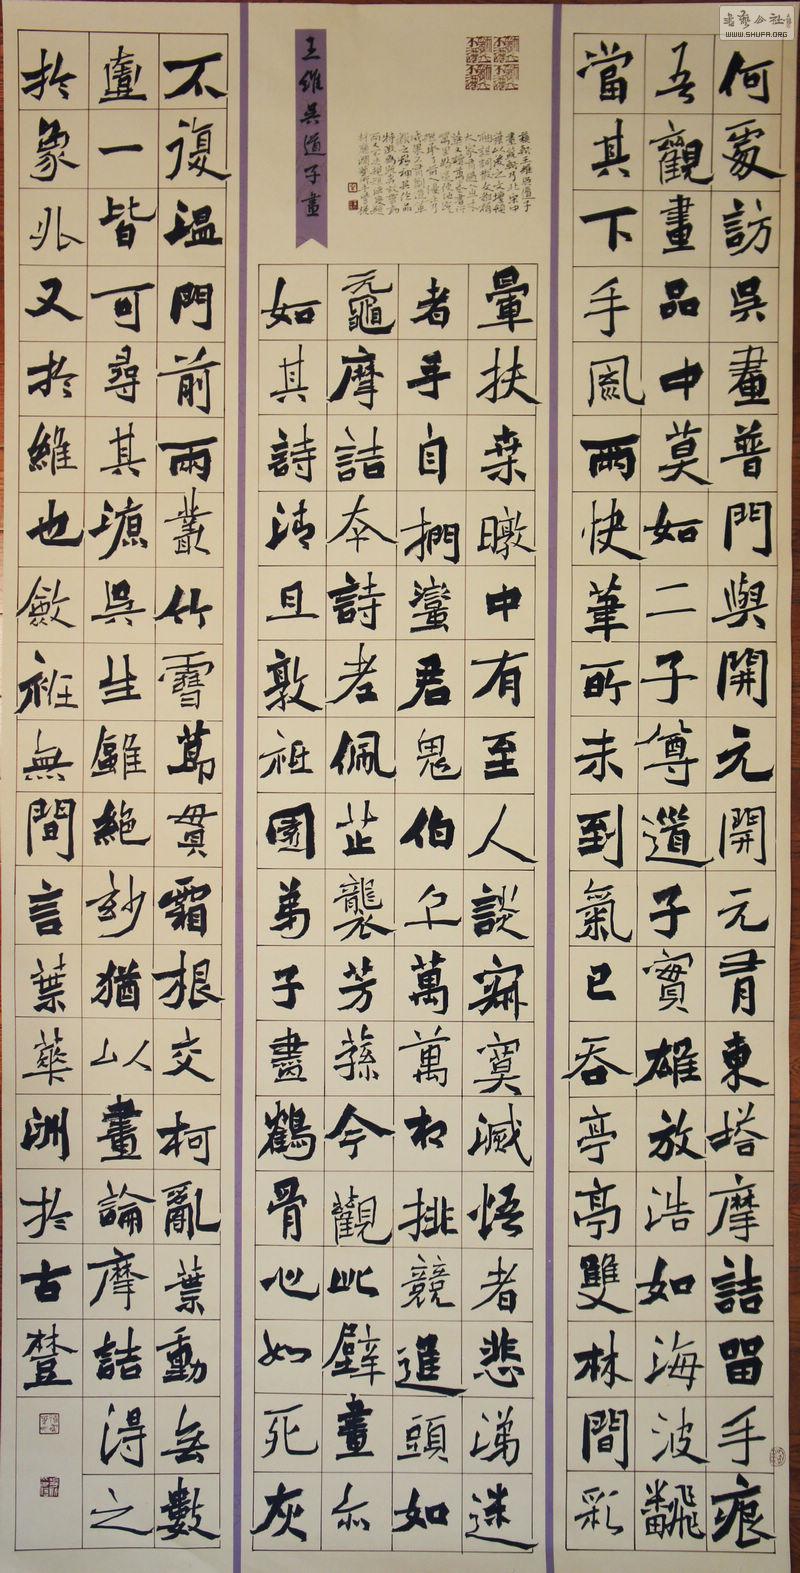 书艺公社
WWW.SHUFA.ORG
何處訪吳畫普門與開元開元有東塔摩詰留手痕
吾觀畫品中莫如二子尊道子實雄放浩如海波飜
當其下手風雨快筆所未到氣已吞亭亭雙林間彩
王維吳道子畫
暈扶桒暾中有至人談寂寞滅悟者悲涕迷
者手自捫蠻君鬼伯千萬萬相排競進頭如
黿摩詰本詩老佩芷襲芳蓀今觀此壁畫亦
如其詩清且敦祇園弟子盡鶴骨心如死灰
不復溫門前兩叢竹雪節貫霜根交柯亂葉動無數
一皆可尋其源吳生雖絕妙猶以畫論摩詰得之
於象外又於維也斂衽無間言葉華洲於古登